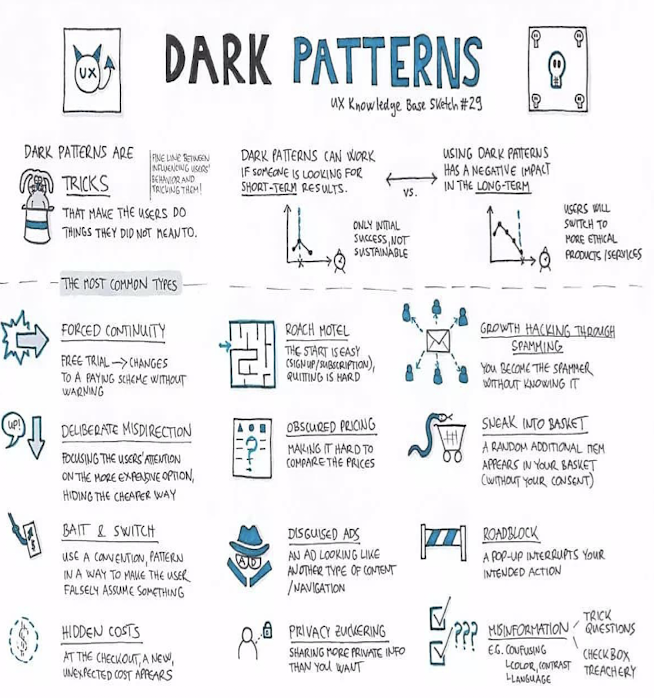 UX
DARK PATTERNS
UX Knowledge Base Sketch #29
DARK PATTERNS ARE
TRICKS
THAT MAKE THE USERS DO
THINGS THEY DID NOT MEAN TO.
FINE LINE BETWEEN
INFLUENCING USERS'
BEHAVIOR AND
TRICKING THEM!
DARK PATTERNS CAN WORK
IF SOMEONE IS LOOKING FOR
SHORT-TERM RESULTS.
VS.
USING DARK PATTERNS
HAS A NEGATIVE IMPACT
IN THE LONG-TERM
ONLY INITIAL
SUCCESS, NOT
SUSTAINABLE
USERS WILL
SWITCH TO
MORE ETHICAL
PRODUCTS/SERVICES
THE MOST COMMON TYPES
FORCED CONTINUITY
FREE TRIAL → CHANGES
TO A PAYING SCHEME WITHOUT
WARNING
ROACH MOTEL
THE START IS EASY
(SIGN UP/SUBSCRIPTION),
QUITTING IS HARD
GROWTH HACKING THROUGH
SPAMMING
YOU BECOME THE SPAMMER
WITHOUT KNOWING IT
UP!
DELIBERATE MISDIRECTION
FOCUSING THE USERS' ATTENTION
ON THE MORE EXPENSIVE OPTION,
HIDING THE CHEAPER WAY
?
OBSCURED PRICING
MAKING IT HARD TO
COMPARE THE PRICES
SNEAK INTO BASKET
A RANDOM ADDITIONAL ITEM
APPEARS IN YOUR BASKET
(WITHOUT YOUR CONSENT)
$
BAIT & SWITCH
USE A CONVENTION, PATTERN
IN A WAY TO MAKE THE USER
FALSELY ASSUME SOMETHING
AD
DISGUISED ADS
AN AD LOOKING LIKE
ANOTHER TYPE OF CONTENT
/NAVIGATION
ROADBLOCK
A POP-UP INTERRUPTS YOUR
INTENDED ACTION
$
HIDDEN COSTS
AT THE CHECKOUT, A NEW,
UNEXPECTED COST APPEARS
PRIVACY ZUCKERING
SHARING MORE PRIVATE INFO
THAN YOU WANT
???
MISINFORMATION
E.G. CONFUSING
COLOR, CONTRAST
LANGUAGE
TRICK
QUESTIONS
CHECKBOX
TREACHERY